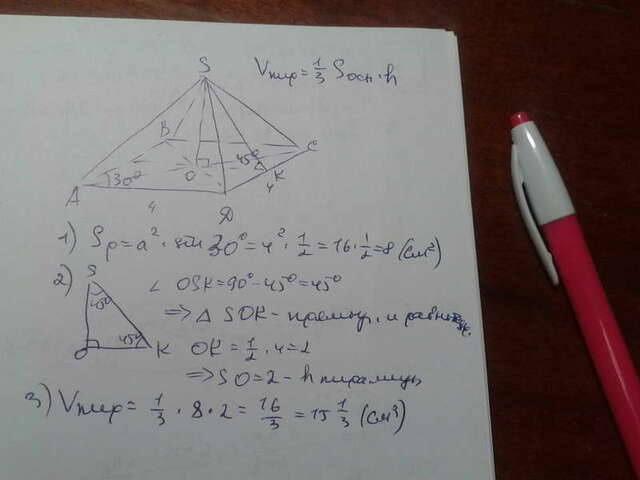 S
Vпир = 1/3 Sосн · h
B
C
45°
K
4
O
30°
A
4
D
1) Sр = a² · sin 30° = 4² · 1/2 = 16 · 1/2 = 8 (см²)
2) S
45°
45°
O K
∠ OSK = 90° - 45° = 45°
=> △ SOK - прямоуг. и
OK = 1/2 · 4 = 2
=> SO = 2 - h пирамиды
3) Vпир = 1/3 · 8 · 2 = 16/3 = 15 1/3 (см³)